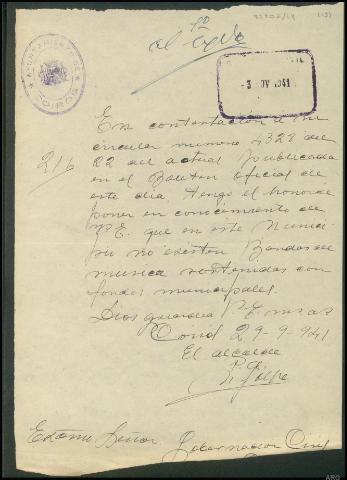 al
- 3 NOV 1941
AYUNTAMIENTO DE
COIROS
216
En contestación a su
circular numero 4328 del
22 del actual publicada
en el Boletin oficial de
este dia tengo el honor de
poner en conocimiento de
V.E. que en este Munici
pio no existen Bandas de
musica sostenidas con
fondos municipales.
Dios guarde V.E. m. as
29-9-941
El alcalde
Excmo Señor Gobernador Civil
ARG